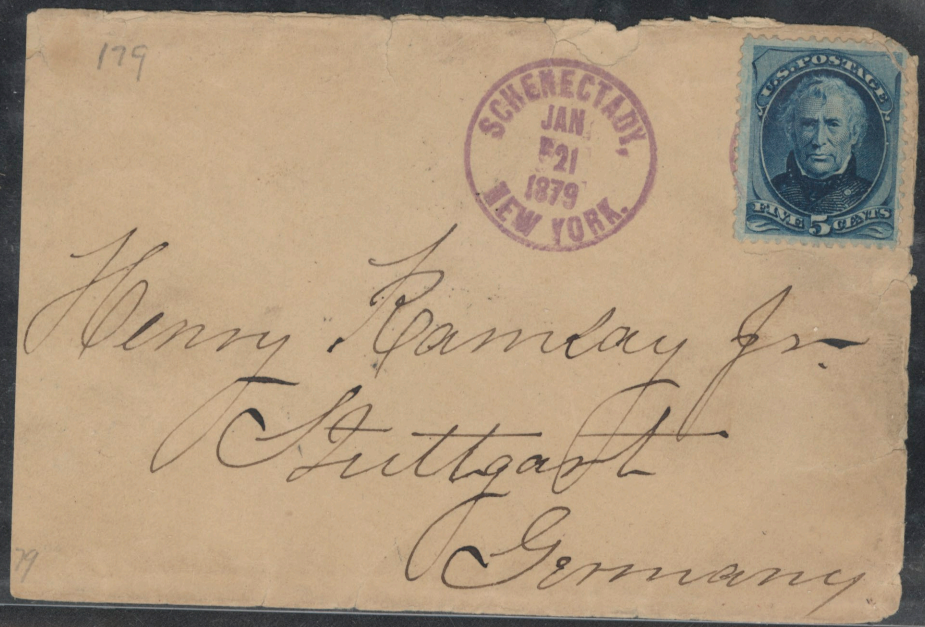 179
SCHENECTADY,
JAN
21
1879
NEW YORK.
U.S. POSTAGE
FIVE 5 CENTS
Henry Ramsay Jr.
Stuttgart
Germany
79